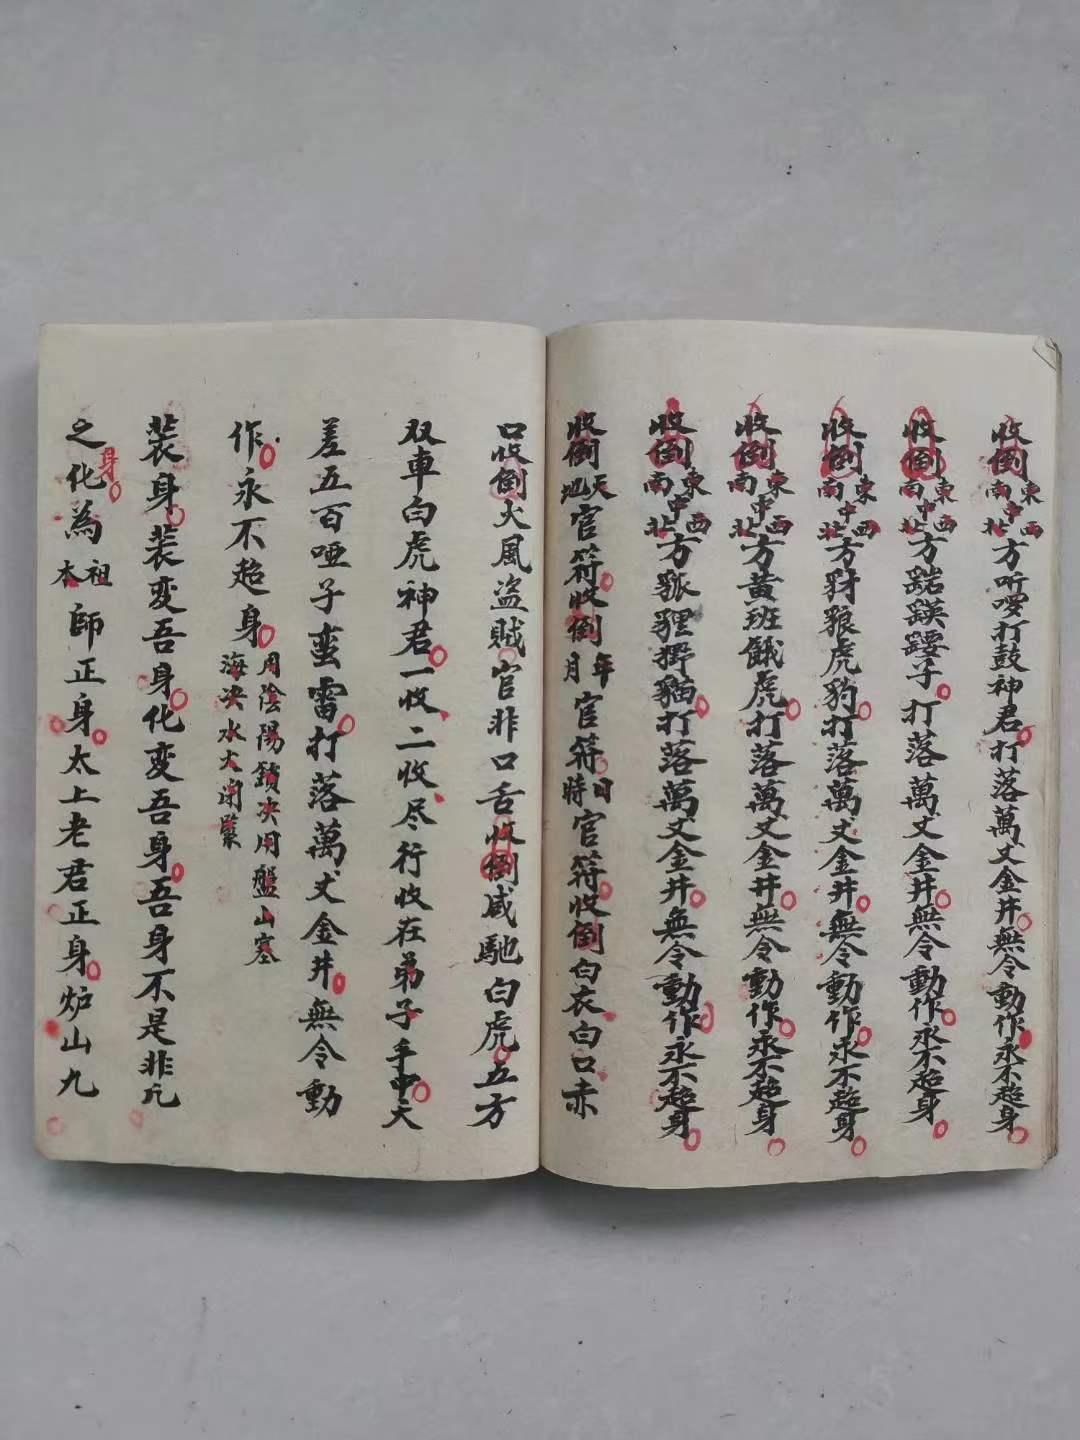 收倒東西中南北方听啰打鼓神君打落萬丈金井無令動作永不超身
收倒東西中南北方子打落萬丈金井無令動作永不超身
收倒東西中南北方豺狼虎豹打落萬丈金井無令動作永不超身
收倒東西中南北方黃班餓虎打落萬丈金井無令動作永不超身
收倒東西中南北方狐狸野猫打落萬丈金井無令動作永不超身
收倒天地官符收倒年月官符日時官符收倒白衣白口赤
口收倒火風盜賊官非口舌收倒咸馳白虎五方
双車白虎神君一收二收尽行收在弟子手中天
差五百哑子蛮雷打落萬丈金井無令動
作永不超身用陰陽鎖决用盤山塞海决水大闭緊
裝身裝变吾身化变吾身吾身不是非凡
之身化為祖本師正身太上老君正身炉山九